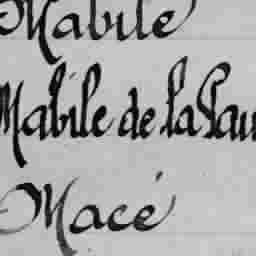 Mabile
Mabile de la
Macé